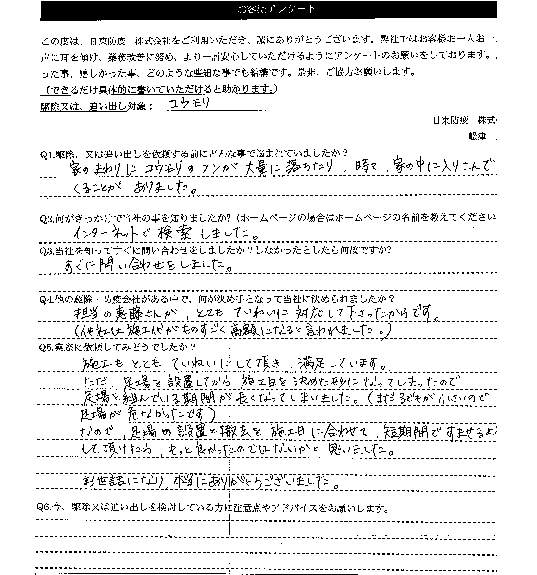 お客様アンケート
この度は、日東防疫 株式会社をご利用いただき、誠にありがとうございます。弊社ではお客様お一人お一
声に耳を傾け、業務改善に努め、より一層安心していただけるようにアンケートのお願いをしております。
った事、嬉しかった事、どのような些細な事でも結構です。是非、ご協力お願いします。
(できるだけ具体的に書いていただけると助かります。)
駆除又は、追い出し対象： コウモリ
日東防疫 株式
Q1.駆除、又は追い出しを依頼する前にどんな事で悩まれていましたか？
家のまわりにコウモリのフンが大量に落ちたり、時々、家の中に入りこんで
くることがありました。
Q2.何がきっかけで当社の事を知りましたか？(ホームページの場合はホームページの名前を教えてください
インターネットで検索しました。
Q3.当社を知ってすぐに問い合わせをしましたか？しなかったとしたら何故ですか？
すぐに問い合わせをしました。
Q4.他の駆除・防疫会社がある中で、何が決め手となって当社に決められましたか？
担当の斎藤さんが、とてもていねいに対応して下さったからです。
(他社は施工代がものすごく高額になると言われました。)
Q5.実際に依頼してみてどうでしたか？
施工もとてもていねいにして頂き、満足しています。
ただ、足場を設置してから施工日を決めた形になってしまったので
足場を組んでいる期間が長くなってしまいました。(まだ子どもが小さいので
足場が危なかったです)
なので、足場の設置と撤去を施工日に合わせて、短期間ですませるよ
して頂けたら、もっと良かったのではないかと思いました。
お世話になり、本当にありがとうございました。
Q6.今、駆除又は追い出しを検討している方に注意点やアドバイスをお願いします。